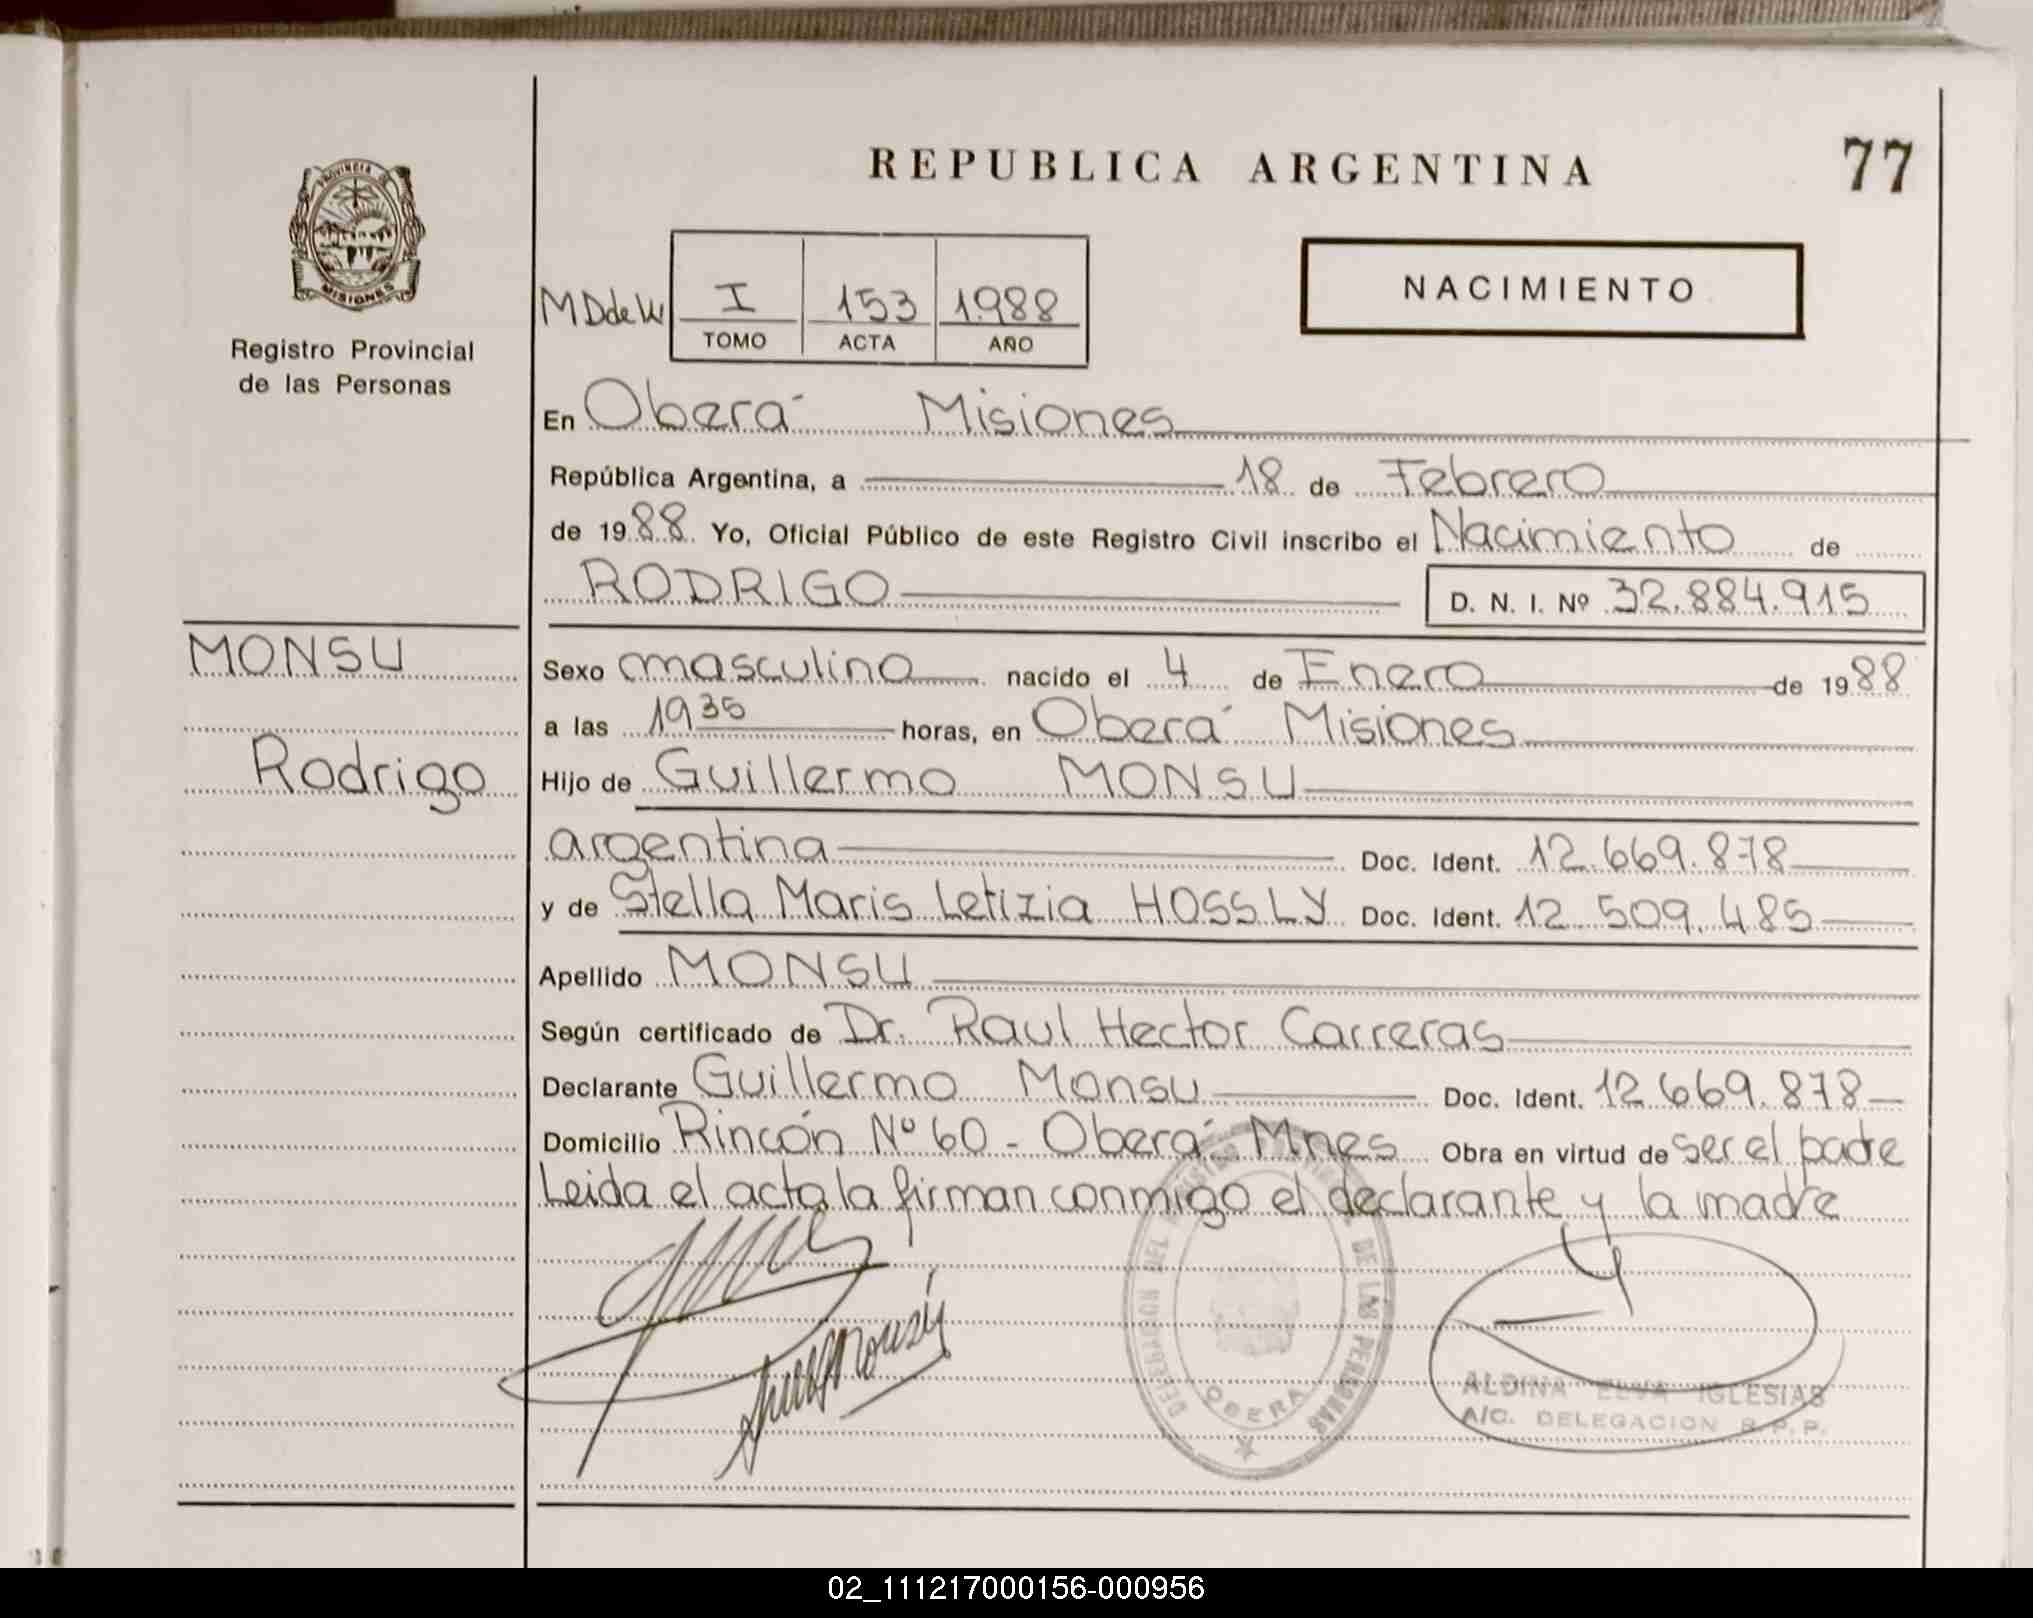 REPUBLICA ARGENTINA
77
PROVINCIA DE
MISIONES
Registro Provincial
de las Personas
NACIMIENTO
I 153 1988
TOMO ACTA AÑO
En Oberá Misiones
República Argentina, a 18 de Febrero
de 1988 Yo, Oficial Público de este Registro Civil inscribo el Nacimiento de
RODRIGO D. N. I. Nº 32.884.915
MONSU
Rodrigo
Sexo masculino nacido el 4 de Enero de 1988
a las 19 35 horas, en Oberá Misiones
Hijo de Guillermo MONSU
argentina Doc. Ident. 12.669.878
y de Stella Maris Letizia HOSSLY Doc. Ident. 12.509.485
Apellido MONSU
Según certificado de Dr. Raul Hector Carreras
Declarante Guillermo Monsu Doc. Ident. 12.669.878
Domicilio Rincón Nº 60 - Oberá Mnes Obra en virtud de ser el padre
Leida el acta la firman conmigo el declarante y la madre
DELEGACION DEL REGISTRO DE LAS PERSONAS
OBERA
ALDINA ELVA IGLESIAS
A/C. DELEGACION R.P.P.
02_111217000156-000956